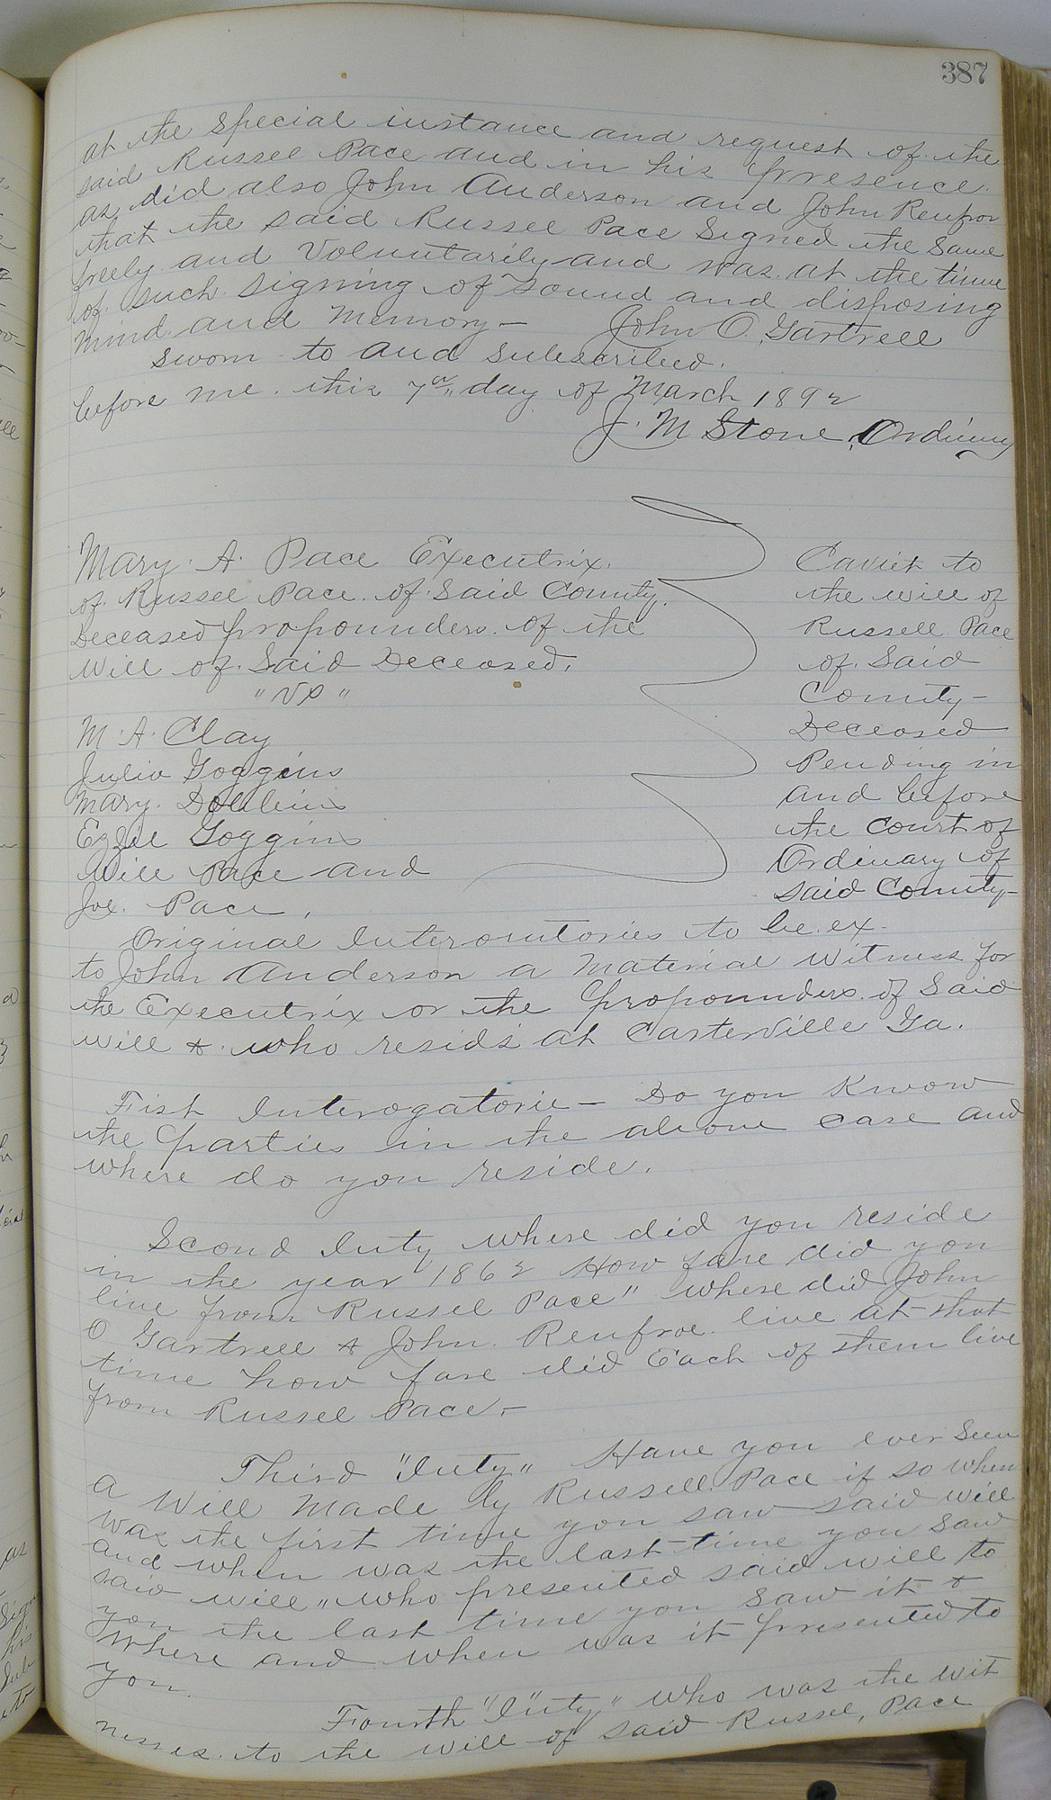 387
at the special instance and request of the
said Russel Pace and in his presence.
as did also John Anderson and John Renfroe
that the said Russel Pace Signed the Same
freely and Voluntarily and was at the time
of such signing of sound and disposing
mind and Memory— John O. Gartrell
Sworn to and subscribed.
before me this 7th day of March 1892
J. M Stone, Ordinary
Mary A. Pace Executrix.
of Russel Pace of Said County.
Deceased propounders of the
Will of Said Deceased.
"VS"
M. A. Clay
Julia Goggins
Mary
Goggins
Will Pace and
Joe. Pace.
Caviet to
the will of
Russell Pace
of Said
County—
Deceased
Pending in
and before
the Court of
Ordinary of
said County—
Original Interoutories to be ex.
to John Anderson a Material Witness for
the Executrix or the propounders of Said
will & who resids at Cartersville Ga.
Fist Interogatorie— Do you Know
the parties in the above case and
where do you reside.
Scond Inty where did you reside
in the year 1862 How fare did you
live from Russel Pace" where did John
O Gartrell & John Renfroe live at that
time how fare did Each of them live
from Russel Pace.—
Third "Inty" Have you ever Seen
a Will Made by Russell Pace if so when
was the first time you saw said will
and when was the last time you saw
said will" who presented said will to
you the last time you saw it &
Where and when was it presented to
you.
Fourth "Inty" who was the wit
nesses to the will of said Russel, Pace